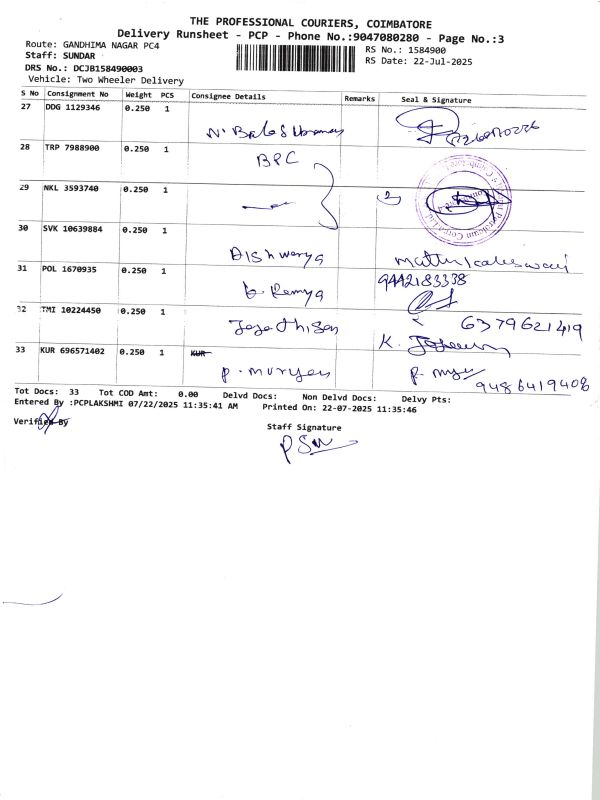 THE PROFESSIONAL COURIERS, COIMBATORE
Delivery Runsheet - PCP - Phone No.:9047080280 - Page No.:3
Route: GANDHIMA NAGAR PC4
RS No.: 1584900
Staff: SUNDAR
RS Date: 22-Jul-2025
DRS No.: DCJB158490003
Vehicle: Two Wheeler Delivery
S No Consignment No Weight PCS Consignee Details Remarks Seal & Signature
27 DDG 1129346 0.250 1
28 TRP 7988900 0.250 1
BPC
29 NKL 3593740 0.250 1
30 SVK 10639884 0.250 1
Aishwarya
31 POL 1670935 0.250 1
9442183338
b. Ramya
32 TMI 10224450 0.250 1
6379621419
33 KUR 696571402 0.250 1 KUR
9486419408
Tot Docs: 33 Tot COD Amt: 0.00 Delvd Docs: Non Delvd Docs: Delvy Pts:
Entered By :PCPLAKSHMI 07/22/2025 11:35:41 AM Printed On: 22-07-2025 11:35:46
Verified By
Staff Signature